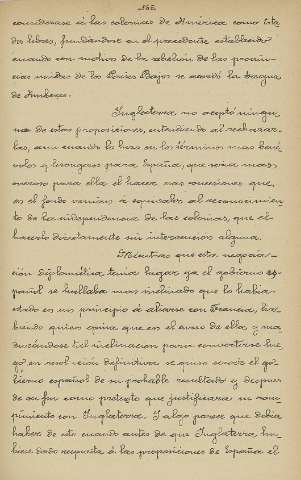 considerase á las colonias de América como Esta
dos libres, fundándose en el precedente establecido
cuando con motivo de la rebelión de las provin
cias unidas de los Países Bajos se acordó la tregua
de Amberes.
Inglaterra no aceptó ningu
na de estas proposiciones, entendiendo al rechazar
las, aun cuando lo hizo en los términos mas bené
volos y lisongeros para España, que sería mas
oneroso para ella el hacer unas concesiones que
en el fondo venían á equivaler al reconocimien
to de la independencia de las colonias, que el
hacerlo directamente sin intervencion alguna.
Mientras que esta negocia
ción diplomática tenia lugar ya el gobierno es
pañol se hallaba mas inclinado que lo habia
estado en un principio á aliarse con Francia, ha
biendo quien opina que en el curso de ella, y ma
durándose tal inclinacion para convertirse lue
go en resolución definitiva se quiso servir el go
bierno español de su probable resultado y despues
de su fin como pretexto que justificara su rom
pimiento con Inglaterra. Y algo parece que debia
haber de esto cuando antes de que Inglaterra hu
biera dado respuesta á las proposiciones de España el